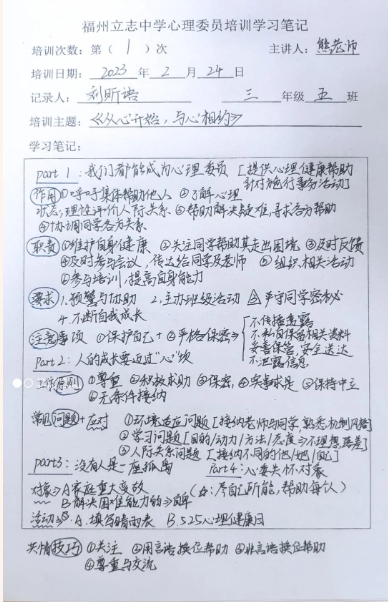 福州立志中学心理委员培训学习笔记
培训次数：第（ 1 ）次 主讲人：熊老师
培训日期：2023 年 2 月 24 日
记录人：刘昕语 三 年级 五 班
培训主题：《从心开始，与心相约》
学习笔记：
part 1：我们都能成为心理委员 [提供心理健康帮助
针对施行事务活动]
作用 ①呼吁集体帮助他人 ②了解心理
状态，理性评价人际关系 ③帮助解决疑难，寻求各方帮助
④协调同学各方关系
职责 ①维护自身健康 ②关注同学帮助其走出困境 ③及时反馈
④及时参与会议，传达给同学及老师 ⑤组织相关活动
⑥参与培训，提高自身能力
要求 1.预警与协助 2.主办班级活动 3 严守同学密秘
4.不断自我成长
注意事项 ①保护自己 + ②严格保密
不传播透露
不私自保留相关资料
妥善保管，安全送达
不泄露信息
Part 2：人的成长要迈过"心"坎
工作原则 ①尊重 ②积极求助 ③保密 ④实事求是 ⑤保持中立
⑥无条件接纳
常见问题+应对 ①环境适应问题 [接纳老师与同学 熟悉机制风格]
②学习问题 [目的/动力/方法/态度→不理想落差]
③人际关系问题 [接纳不同的他/她/自己]
part3：没有人是一座孤岛 part4：心委关怀对象
对象→A家庭重大变故 (☆：尽自己所能，帮助每个人)
B.解决困难能力的
活动→A.填写晴雨表 B.525心理健康日
共情技巧 ①关注 ②用言语换位帮助 ③非言语换位帮助
④尊重与交流